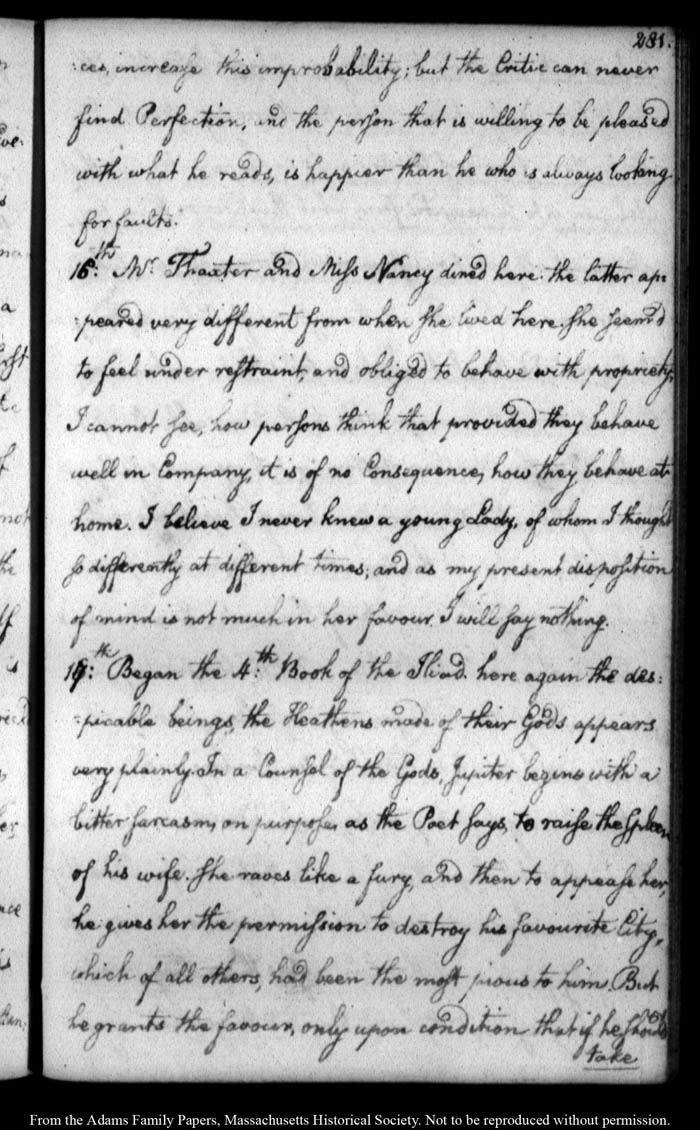 281.
:ces, increase this improbability; but the Critic can never
find Perfection, and the person that is willing to be pleased
with what he reads, is happier than he who is always looking
for faults.
16:th Mr. Thaxter and Miss Nancy dined here. the latter ap:
:peared very different from when she lived here. She seem'd
to feel under restraint, and obliged to behave with propriety,
I cannot see, how persons think that provided they behave
well in Company, it is of no Consequence, how they behave at
home. I believe I never knew a young Lady, of whom I thought
so differently at different times; and as my present disposition
of mind is not much in her favour, I will say nothing.
Began the 4:th Book of the Iliad. here again the des:
:picable beings, the Heathens made of their Gods appears
very plainly. In a Counsel of the Gods, Jupiter begins with a
bitter sarcasm, on purpose, as the Poet says, to raise the Spleen
of his wife. She raves like a fury, and then to appease her,
he gives her the permission to destroy his favourite City,
which of all others, had been the most pious to him. But
he grants the favour, only upon condition that if he should
take
From the Adams Family Papers, Massachusetts Historical Society. Not to be reproduced without permission.